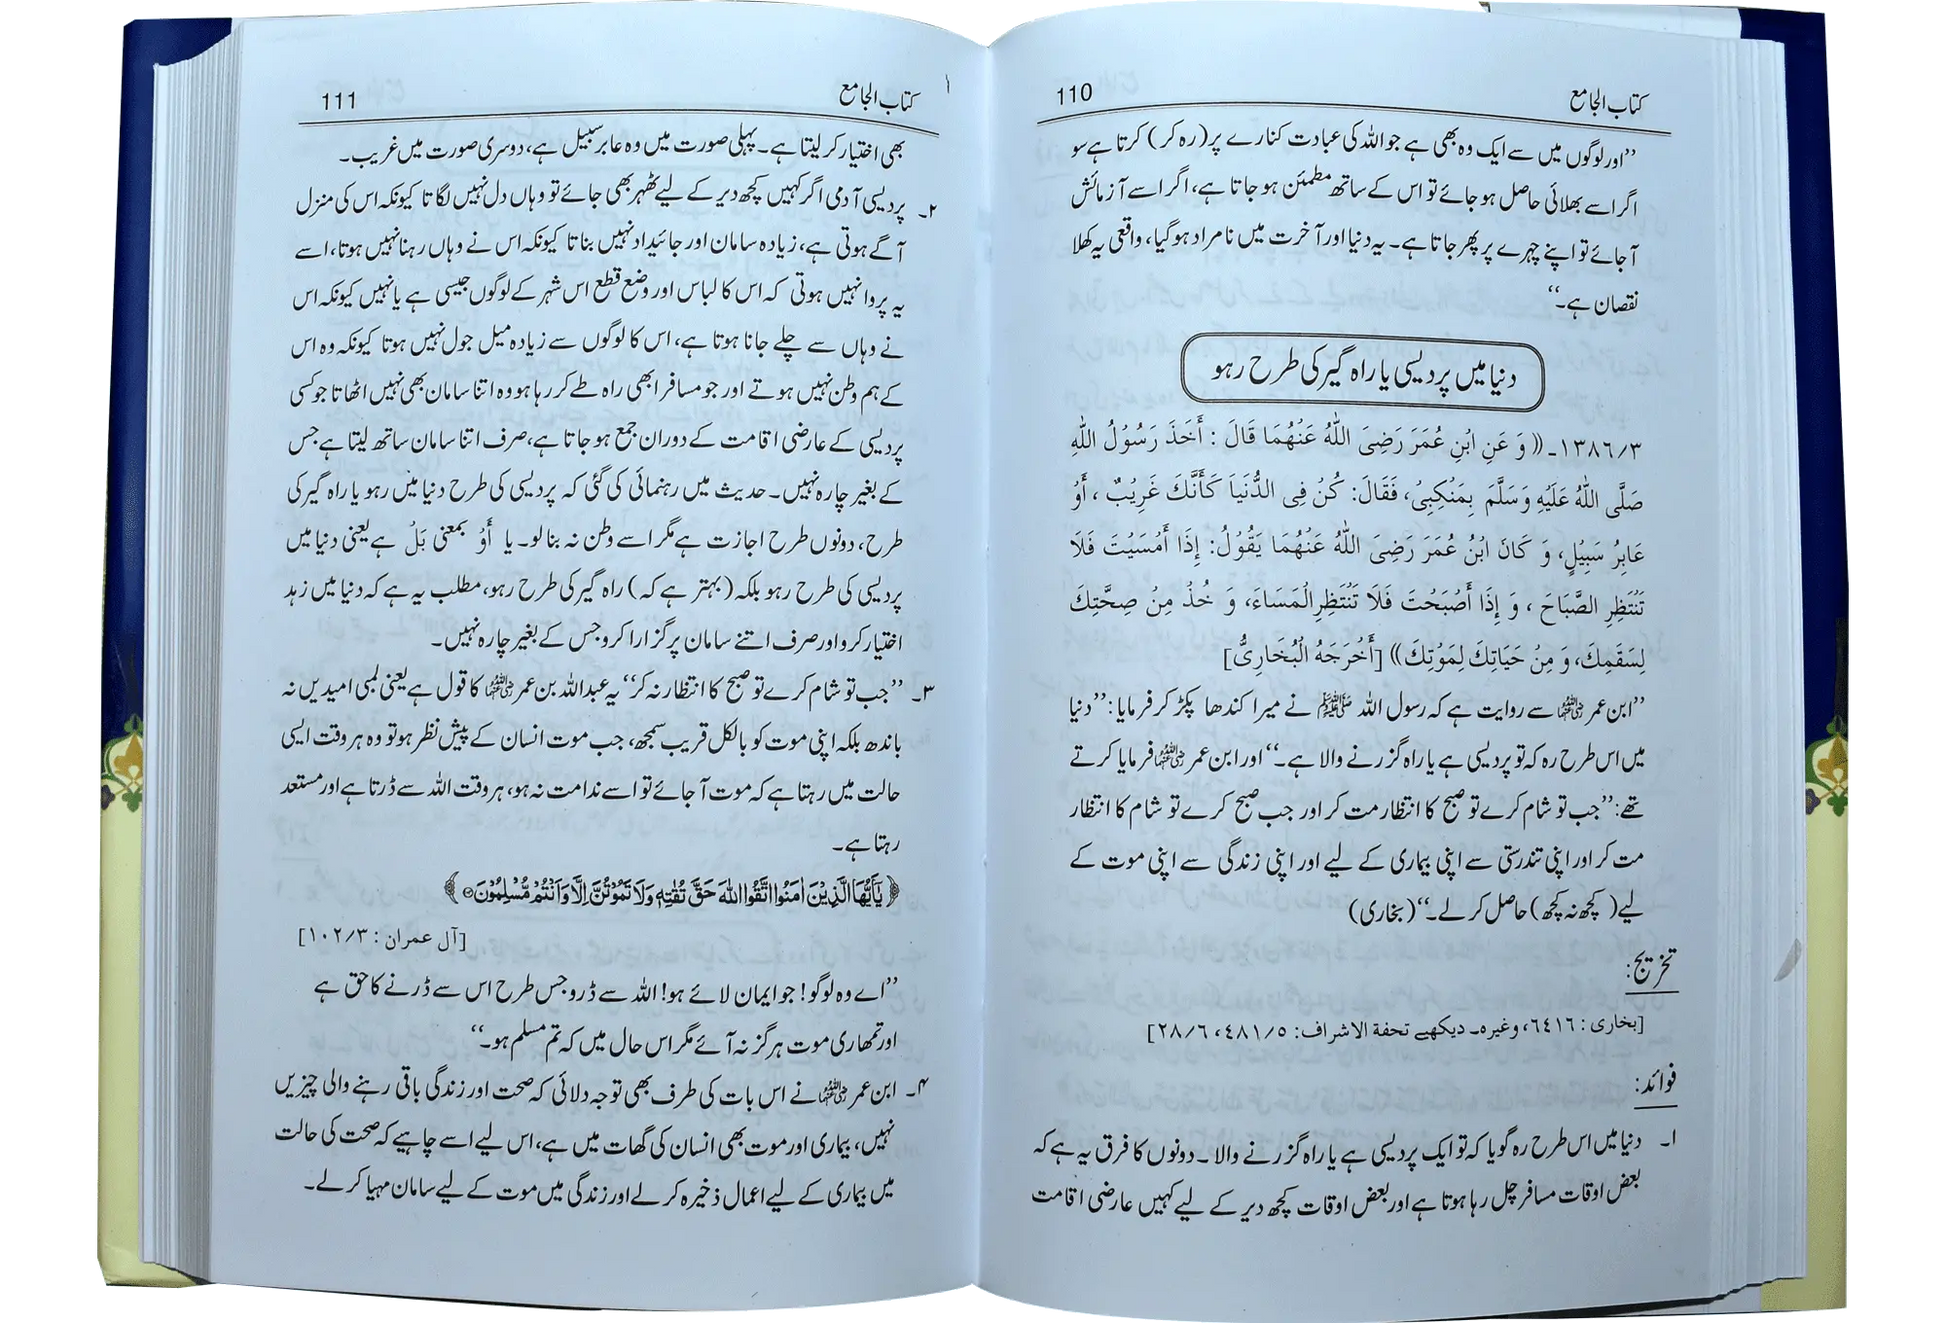 کتاب الجامع 110
’’اور لوگوں میں سے ایک وہ بھی ہے جو اللہ کی عبادت کنارے پر (رہ کر) کرتا ہے سو
اگر اسے بھلائی حاصل ہو جائے تو اس کے ساتھ مطمئن ہو جاتا ہے، اگر اسے آزمائش
آ جائے تو اپنے چہرے پر پھر جاتا ہے۔ یہ دنیا اور آخرت میں نامراد ہو گیا، واقعی یہ کھلا
نقصان ہے۔‘‘
دنیا میں پردیسی یا راہ گیر کی طرح رہو
۱۳۸۶/۳۔ (( وَ عَنِ ابْنِ عُمَرَ رَضِیَ اللّٰہُ عَنْہُمَا قَالَ : أَخَذَ رَسُوْلُ اللّٰہِ
صَلَّی اللّٰہُ عَلَیْہِ وَسَلَّمَ بِمَنْکِبِیْ، فَقَالَ: کُنْ فِی الدُّنْیَا کَأَنَّکَ غَرِیْبٌ ، أَوْ
عَابِرُ سَبِیْلٍ، وَ کَانَ ابْنُ عُمَرَ رَضِیَ اللّٰہُ عَنْہُمَا یَقُوْلُ: إِذَا أَمْسَیْتَ فَلَا
تَنْتَظِرِ الصَّبَاحَ ، وَ إِذَا أَصْبَحْتَ فَلَا تَنْتَظِرِ الْمَسَاءَ، وَ خُذْ مِنْ صِحَّتِکَ
لِسَقَمِکَ، وَ مِنْ حَیَاتِکَ لِمَوْتِکَ)) [أَخْرَجَہُ الْبُخَارِیُّ]
’’ابن عمر رضی اللہ عنہما سے روایت ہے کہ رسول اللہ ﷺ نے میرا کندھا پکڑ کر فرمایا: ’’دنیا
میں اس طرح رہ کہ تو پردیسی ہے یا راہ گزرنے والا ہے۔‘‘ اور ابن عمر رضی اللہ عنہما فرمایا کرتے
تھے: ’’جب تو شام کرے تو صبح کا انتظار مت کر اور جب صبح کرے تو شام کا انتظار
مت کر اور اپنی تندرستی سے اپنی بیماری کے لیے اور اپنی زندگی سے اپنی موت کے
لیے (کچھ نہ کچھ) حاصل کر لے۔‘‘ (بخاری)
تخریج:
[بخاری : ۶۴۱۶، وغیرہ۔ دیکھیے تحفۃ الاشراف: ۴۸۱/۵، ۲۸/۶]
فوائد:
۱۔ دنیا میں اس طرح رہ گویا کہ تو ایک پردیسی ہے یا راہ گزرنے والا۔ دونوں کا فرق یہ ہے کہ
بعض اوقات مسافر چل رہا ہوتا ہے اور بعض اوقات کچھ دیر کے لیے کہیں عارضی اقامت
کتاب الجامع 111
بھی اختیار کر لیتا ہے۔ پہلی صورت میں وہ عابر سبیل ہے، دوسری صورت میں غریب۔
۲۔ پردیسی آدمی اگر کہیں کچھ دیر کے لیے ٹھہر بھی جائے تو وہاں دل نہیں لگاتا کیونکہ اس کی منزل
آگے ہوتی ہے، زیادہ سامان اور جائیداد نہیں بناتا کیونکہ اس نے وہاں رہنا نہیں ہوتا، اسے
یہ پروا نہیں ہوتی کہ اس کا لباس اور وضع قطع اس شہر کے لوگوں جیسی ہے یا نہیں کیونکہ اس
نے وہاں سے چلے جانا ہوتا ہے، اس کا لوگوں سے زیادہ میل جول نہیں ہوتا کیونکہ وہ اس
کے ہم وطن نہیں ہوتے اور جو مسافر ابھی راہ طے کر رہا ہو وہ اتنا سامان بھی نہیں اٹھاتا جو کسی
پردیسی کے عارضی اقامت کے دوران جمع ہو جاتا ہے، صرف اتنا سامان ساتھ لیتا ہے جس
کے بغیر چارہ نہیں۔ حدیث میں رہنمائی کی گئی کہ پردیسی کی طرح دنیا میں رہو یا راہ گیر کی
طرح، دونوں طرح اجازت ہے مگر اسے وطن نہ بنا لو۔ یا أَوْ بمعنی بَلْ ہے یعنی دنیا میں
پردیسی کی طرح رہو بلکہ (بہتر ہے کہ) راہ گیر کی طرح رہو، مطلب یہ ہے کہ دنیا میں زہد
اختیار کرو اور صرف اتنے سامان پر گزارا کرو جس کے بغیر چارہ نہیں۔
۳۔ ’’جب تو شام کرے تو صبح کا انتظار نہ کر‘‘ یہ عبداللہ بن عمر رضی اللہ عنہما کا قول ہے یعنی لمبی امیدیں نہ
باندھ بلکہ اپنی موت کو بالکل قریب سمجھ، جب موت انسان کے پیش نظر ہو تو وہ ہر وقت ایسی
حالت میں رہتا ہے کہ موت آ جائے تو اسے ندامت نہ ہو، ہر وقت اللہ سے ڈرتا ہے اور مستعد
رہتا ہے۔
﴿یٰۤاَیُّهَا الَّذِیْنَ اٰمَنُوا اتَّقُوا اللّٰهَ حَقَّ تُقٰتِهٖ وَ لَا تَمُوْتُنَّ اِلَّا وَ اَنْتُمْ مُّسْلِمُوْنَ﴾
[آل عمران : ۱۰۲/۳]
’’اے وہ لوگو! جو ایمان لائے ہو! اللہ سے ڈرو جس طرح اس سے ڈرنے کا حق ہے
اور تمھاری موت ہرگز نہ آئے مگر اس حال میں کہ تم مسلم ہو۔‘‘
۴۔ ابن عمر رضی اللہ عنہما نے اس بات کی طرف بھی توجہ دلائی کہ صحت اور زندگی باقی رہنے والی چیزیں
نہیں، بیماری اور موت بھی انسان کی گھات میں ہے، اس لیے اسے چاہیے کہ صحت کی حالت
میں بیماری کے لیے اعمال ذخیرہ کر لے اور زندگی میں موت کے لیے سامان مہیا کر لے۔